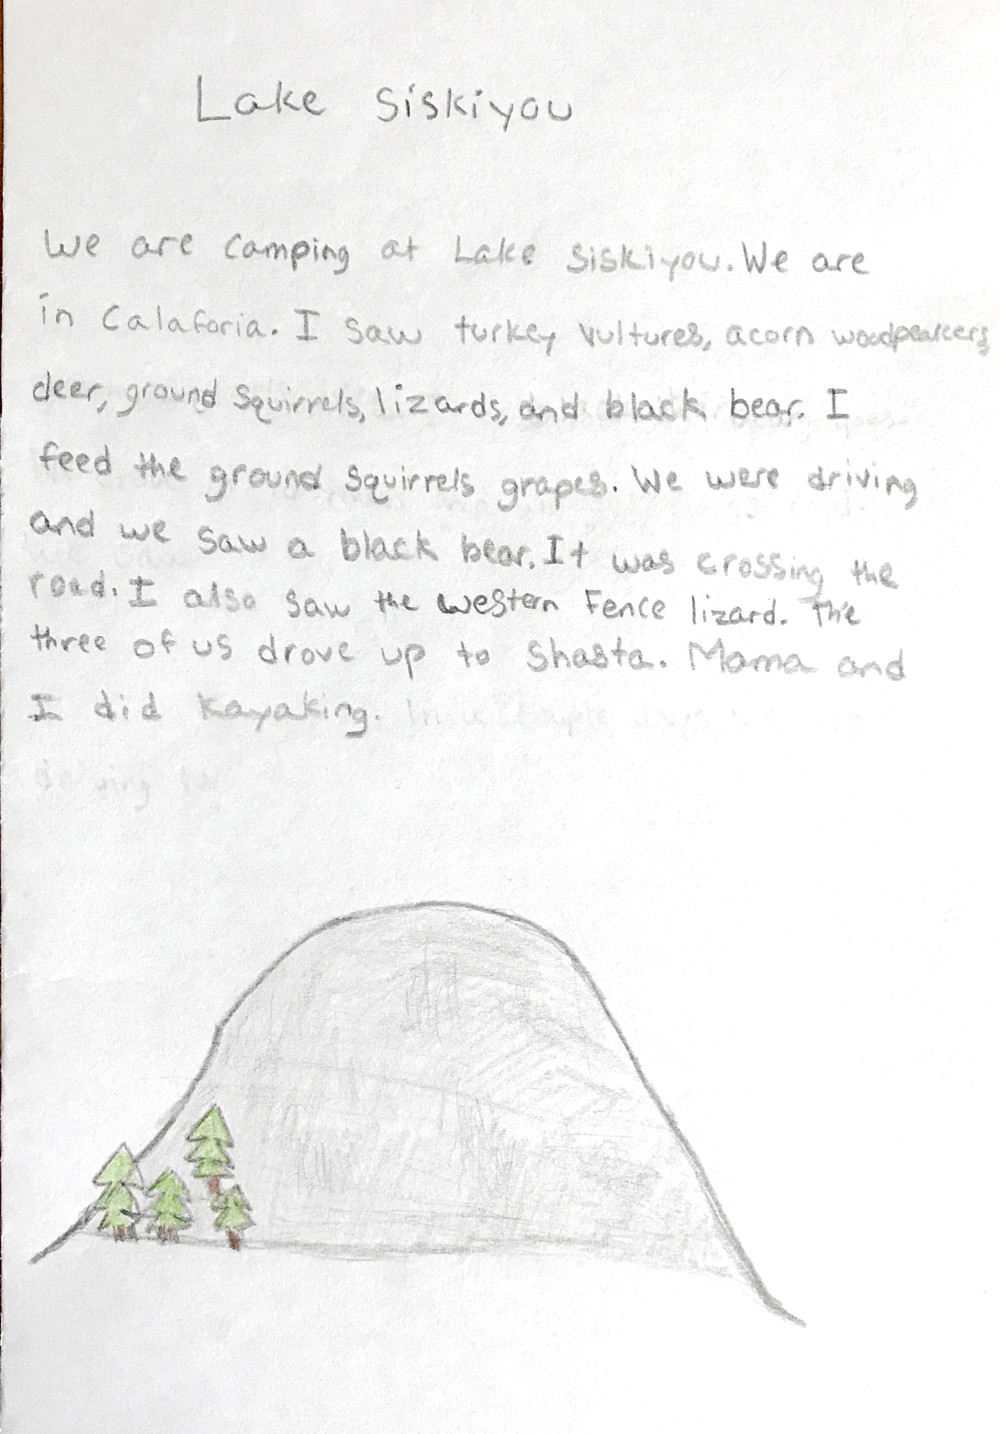 Lake Siskiyou
We are camping at Lake Siskiyou. We are
in Calaforia. I saw turkey vultures, acorn woodpearcers,
deer, ground squirrels, lizards, and black bear. I
feed the ground squirrels grapes. We were driving
and we saw a black bear. It was crossing the
road. I also saw the western Fence lizard. The
three of us drove up to Shasta. Mama and
I did kayaking.